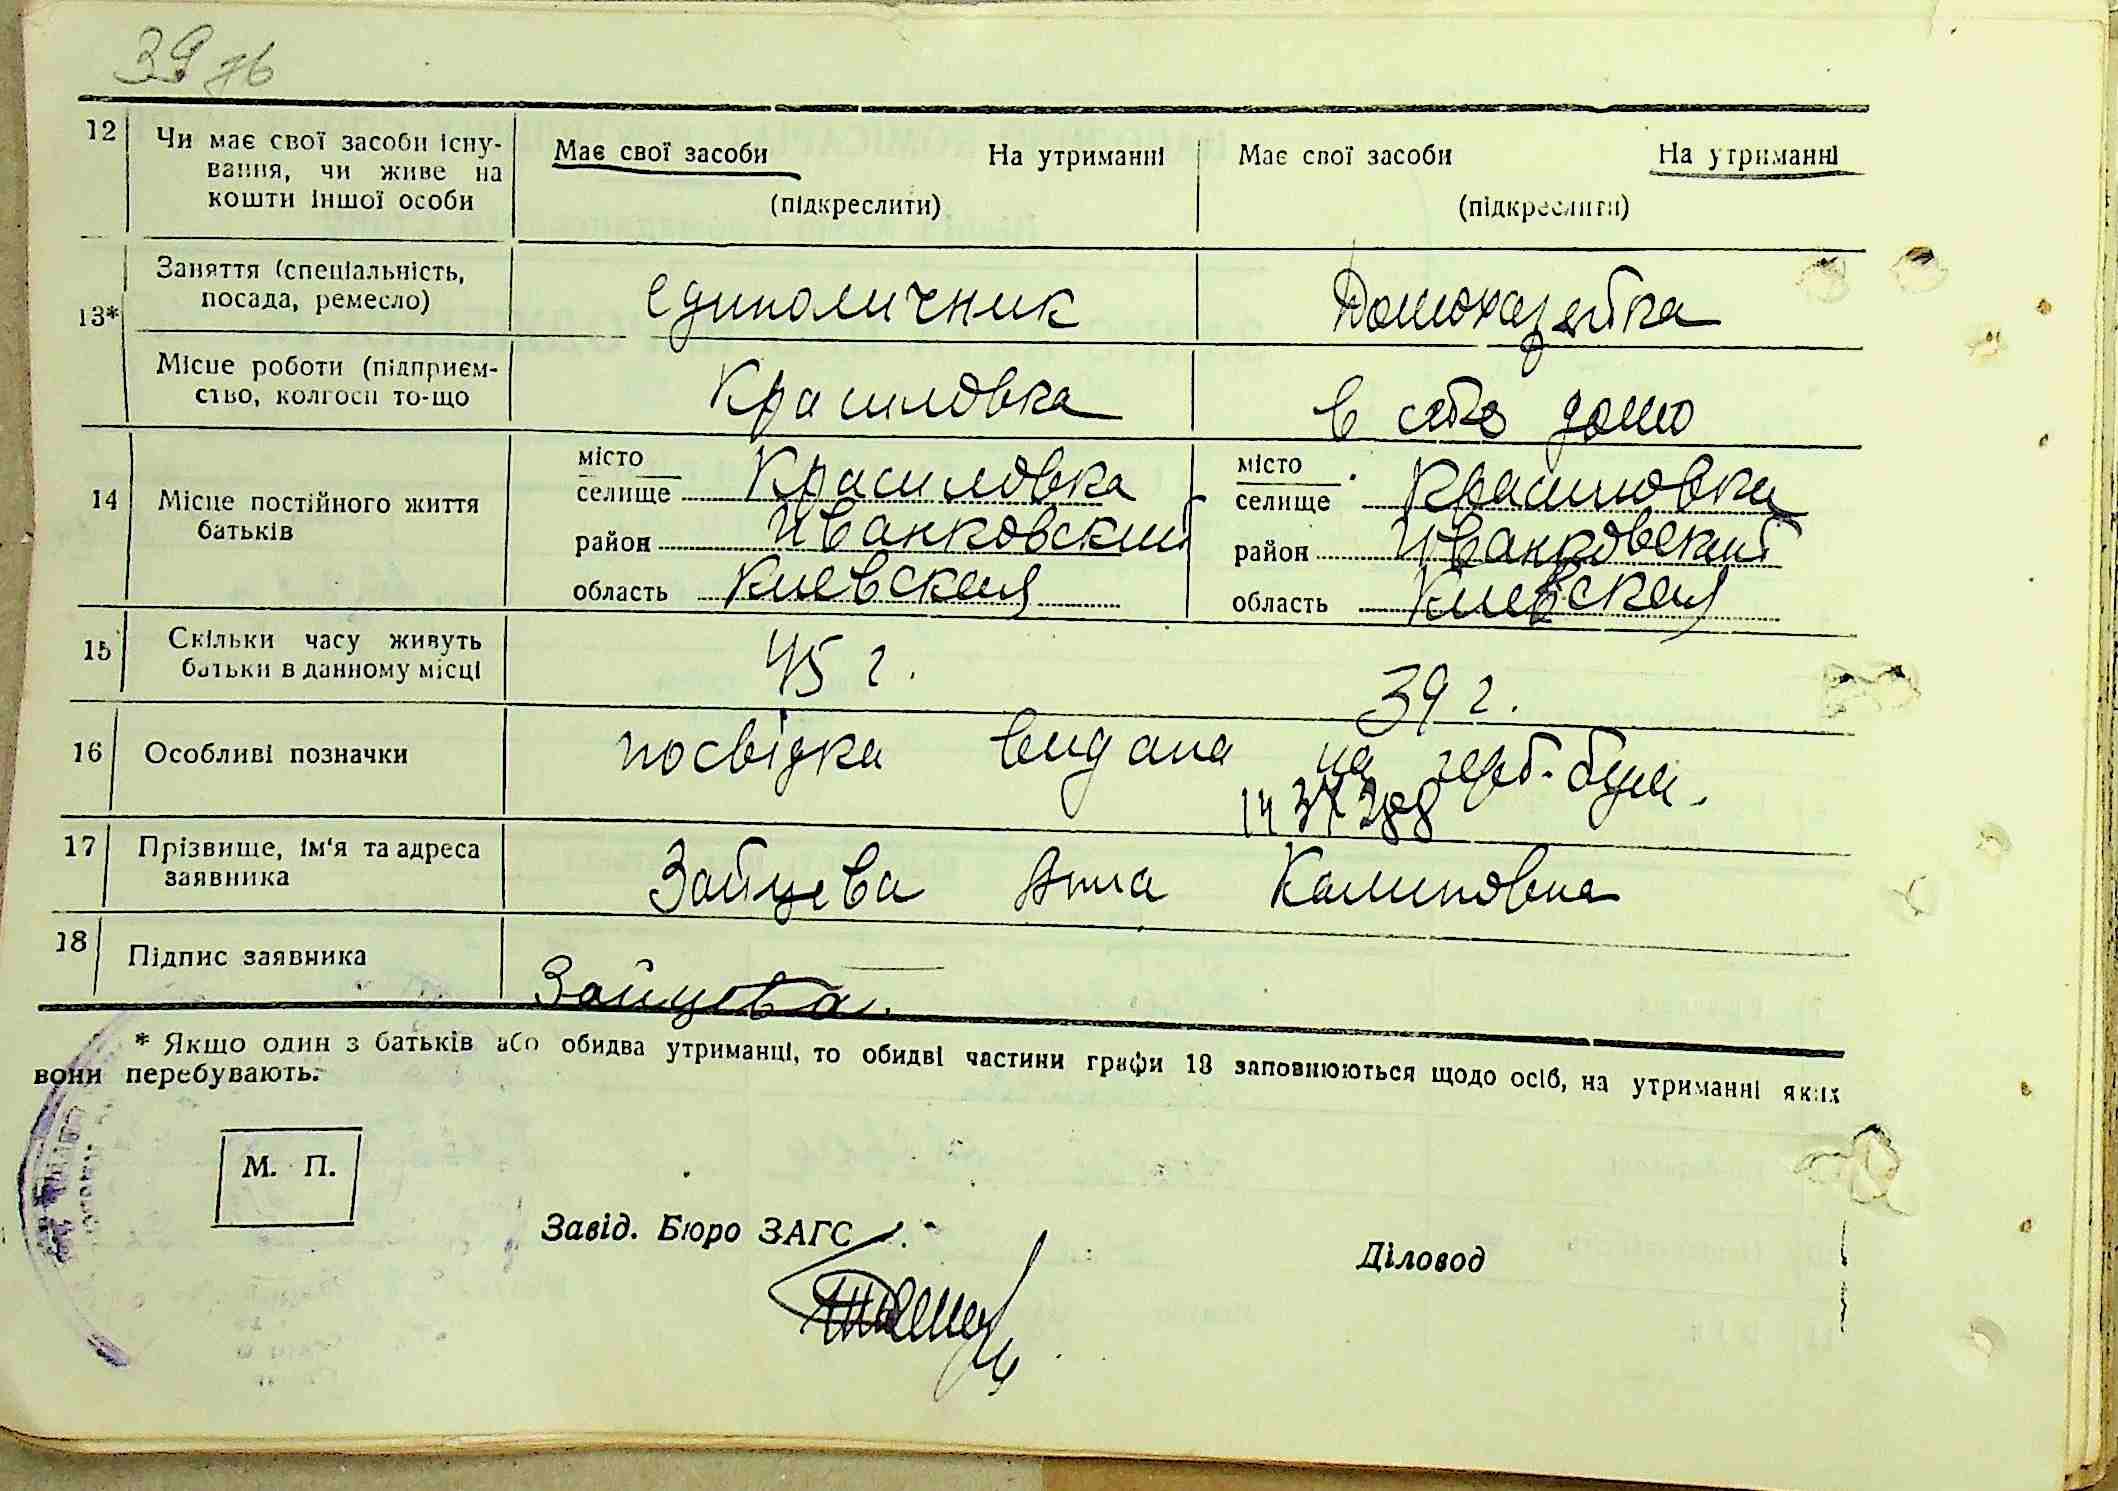 39 зв
12 Чи має свої засоби існу-
вання, чи живе на
кошти іншої особи
Має свої засоби На утриманні Має свої засоби На утриманні
(підкреслити) (підкреслити)
13*
Заняття (спеціальність,
посада, ремесло)
единоличник Домохазяйка
Місце роботи (підприєм-
ство, колгосп то-що
Красиловка в сво дома
14 Місце постійного життя
батьків
місто
селище Красиловка
район Иванковский
область Киевская
місто
селище Красиловка
район Иванковский
область Киевская
15 Скільки часу живуть
батьки в данному місці
45 г. 39 г.
16 Особливі позначки
посвідка видана на герб. бум.
17 Прізвище, ім'я та адреса
заявника
Зайцева Анна Калиновна
18 Підпис заявника
Зайцева.
* Якщо один з батьків або обидва утриманці, то обидві частини графи 13 заповнюються щодо осіб, на утриманні яких
вони перебувають.
М. П.
Завід. Бюро ЗАГС
Діловод